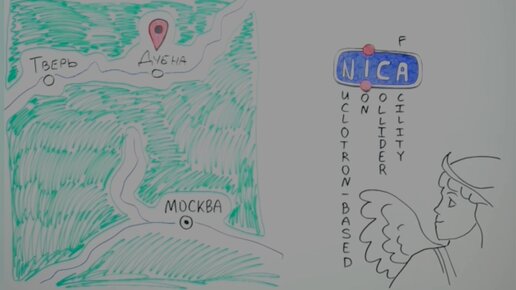 ТВЕРЬ
ДУБНА
МОСКВА
F
NICA
UCLOTRON-BASED
ON
OLLIDER
CILITY